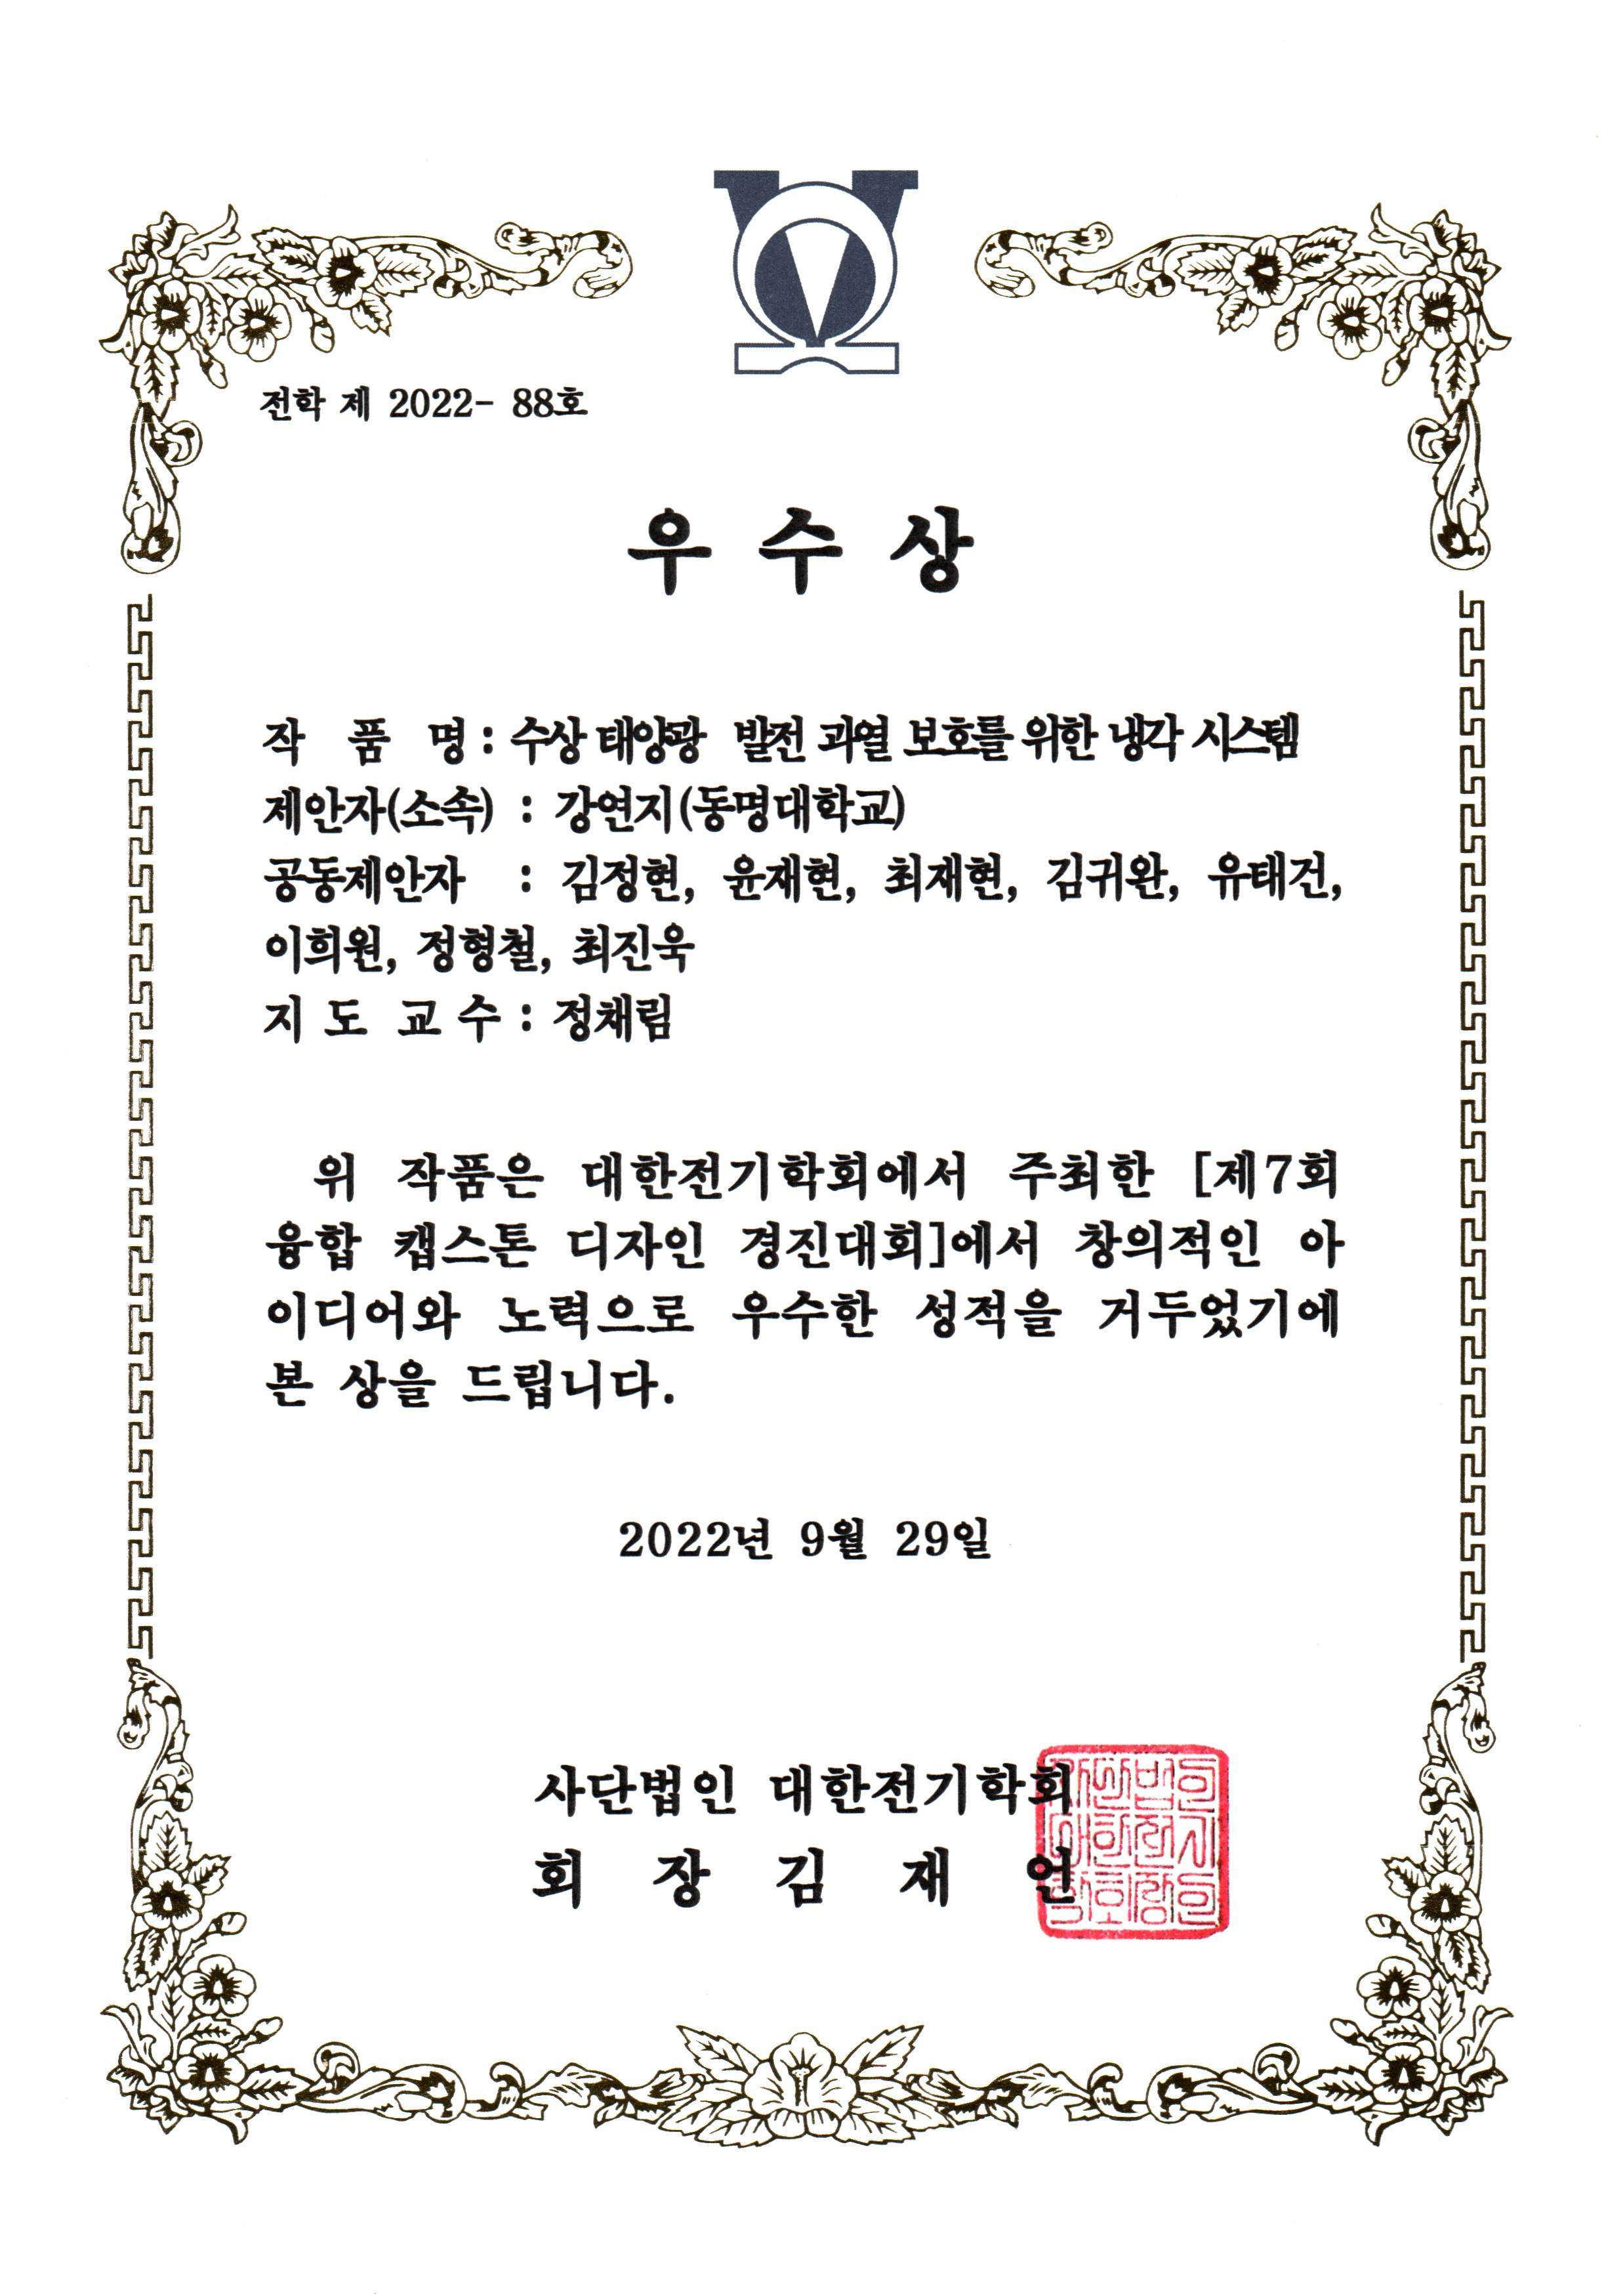 전학 제 2022- 88호
우 수 상
작 품 명 : 수상 태양광 발전 과열 보호를 위한 냉각 시스템
제안자(소속) : 강연지(동명대학교)
공동제안자 : 김정현, 윤재현, 최재현, 김귀완, 유태건,
이희원, 정형철, 최진욱
지 도 교 수 : 정채림
위 작품은 대한전기학회에서 주최한 [제7회
융합 캡스톤 디자인 경진대회]에서 창의적인 아
이디어와 노력으로 우수한 성적을 거두었기에
본 상을 드립니다.
2022년 9월 29일
사단법인 대한전기학회
회 장 김 재 언